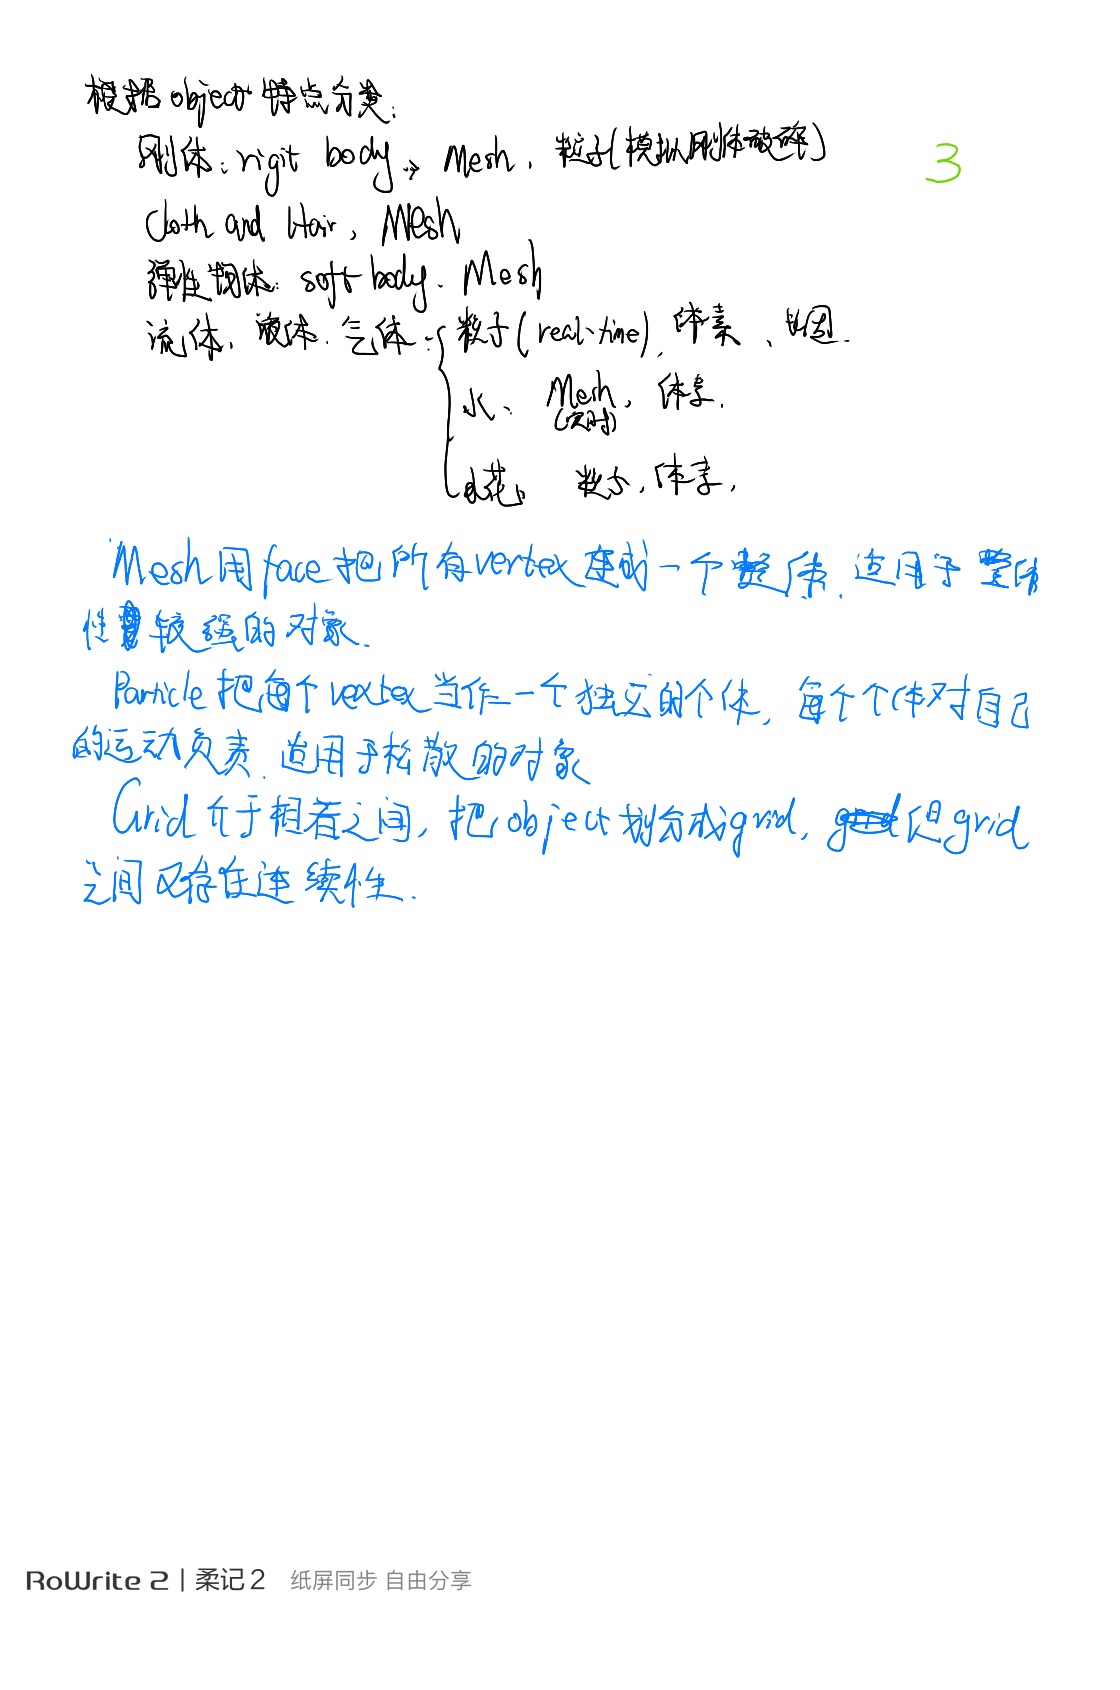 根据object特点分类:
刚体: rigit body → Mesh. 粒子(模拟刚体破碎)
3
Cloth and Hair, Mesh
弹性物体: soft body. Mesh
流体, 液体. 气体: 粒子(real-time), 体素、
水、 Mesh, 体素.
(实时)
水花: 粒子, 体素,
Mesh用face把所有vertex连成一个整体, 适用于整体
性较强的对象.
Particle把每个vextex当作一个独立的个体, 每个个体对自己
的运动负责, 适用于松散的对象
Grid介于相者之间, 把object划分成grid, 但grid
之间又存在连续性.
RoWrite 2 | 柔记2 纸屏同步 自由分享